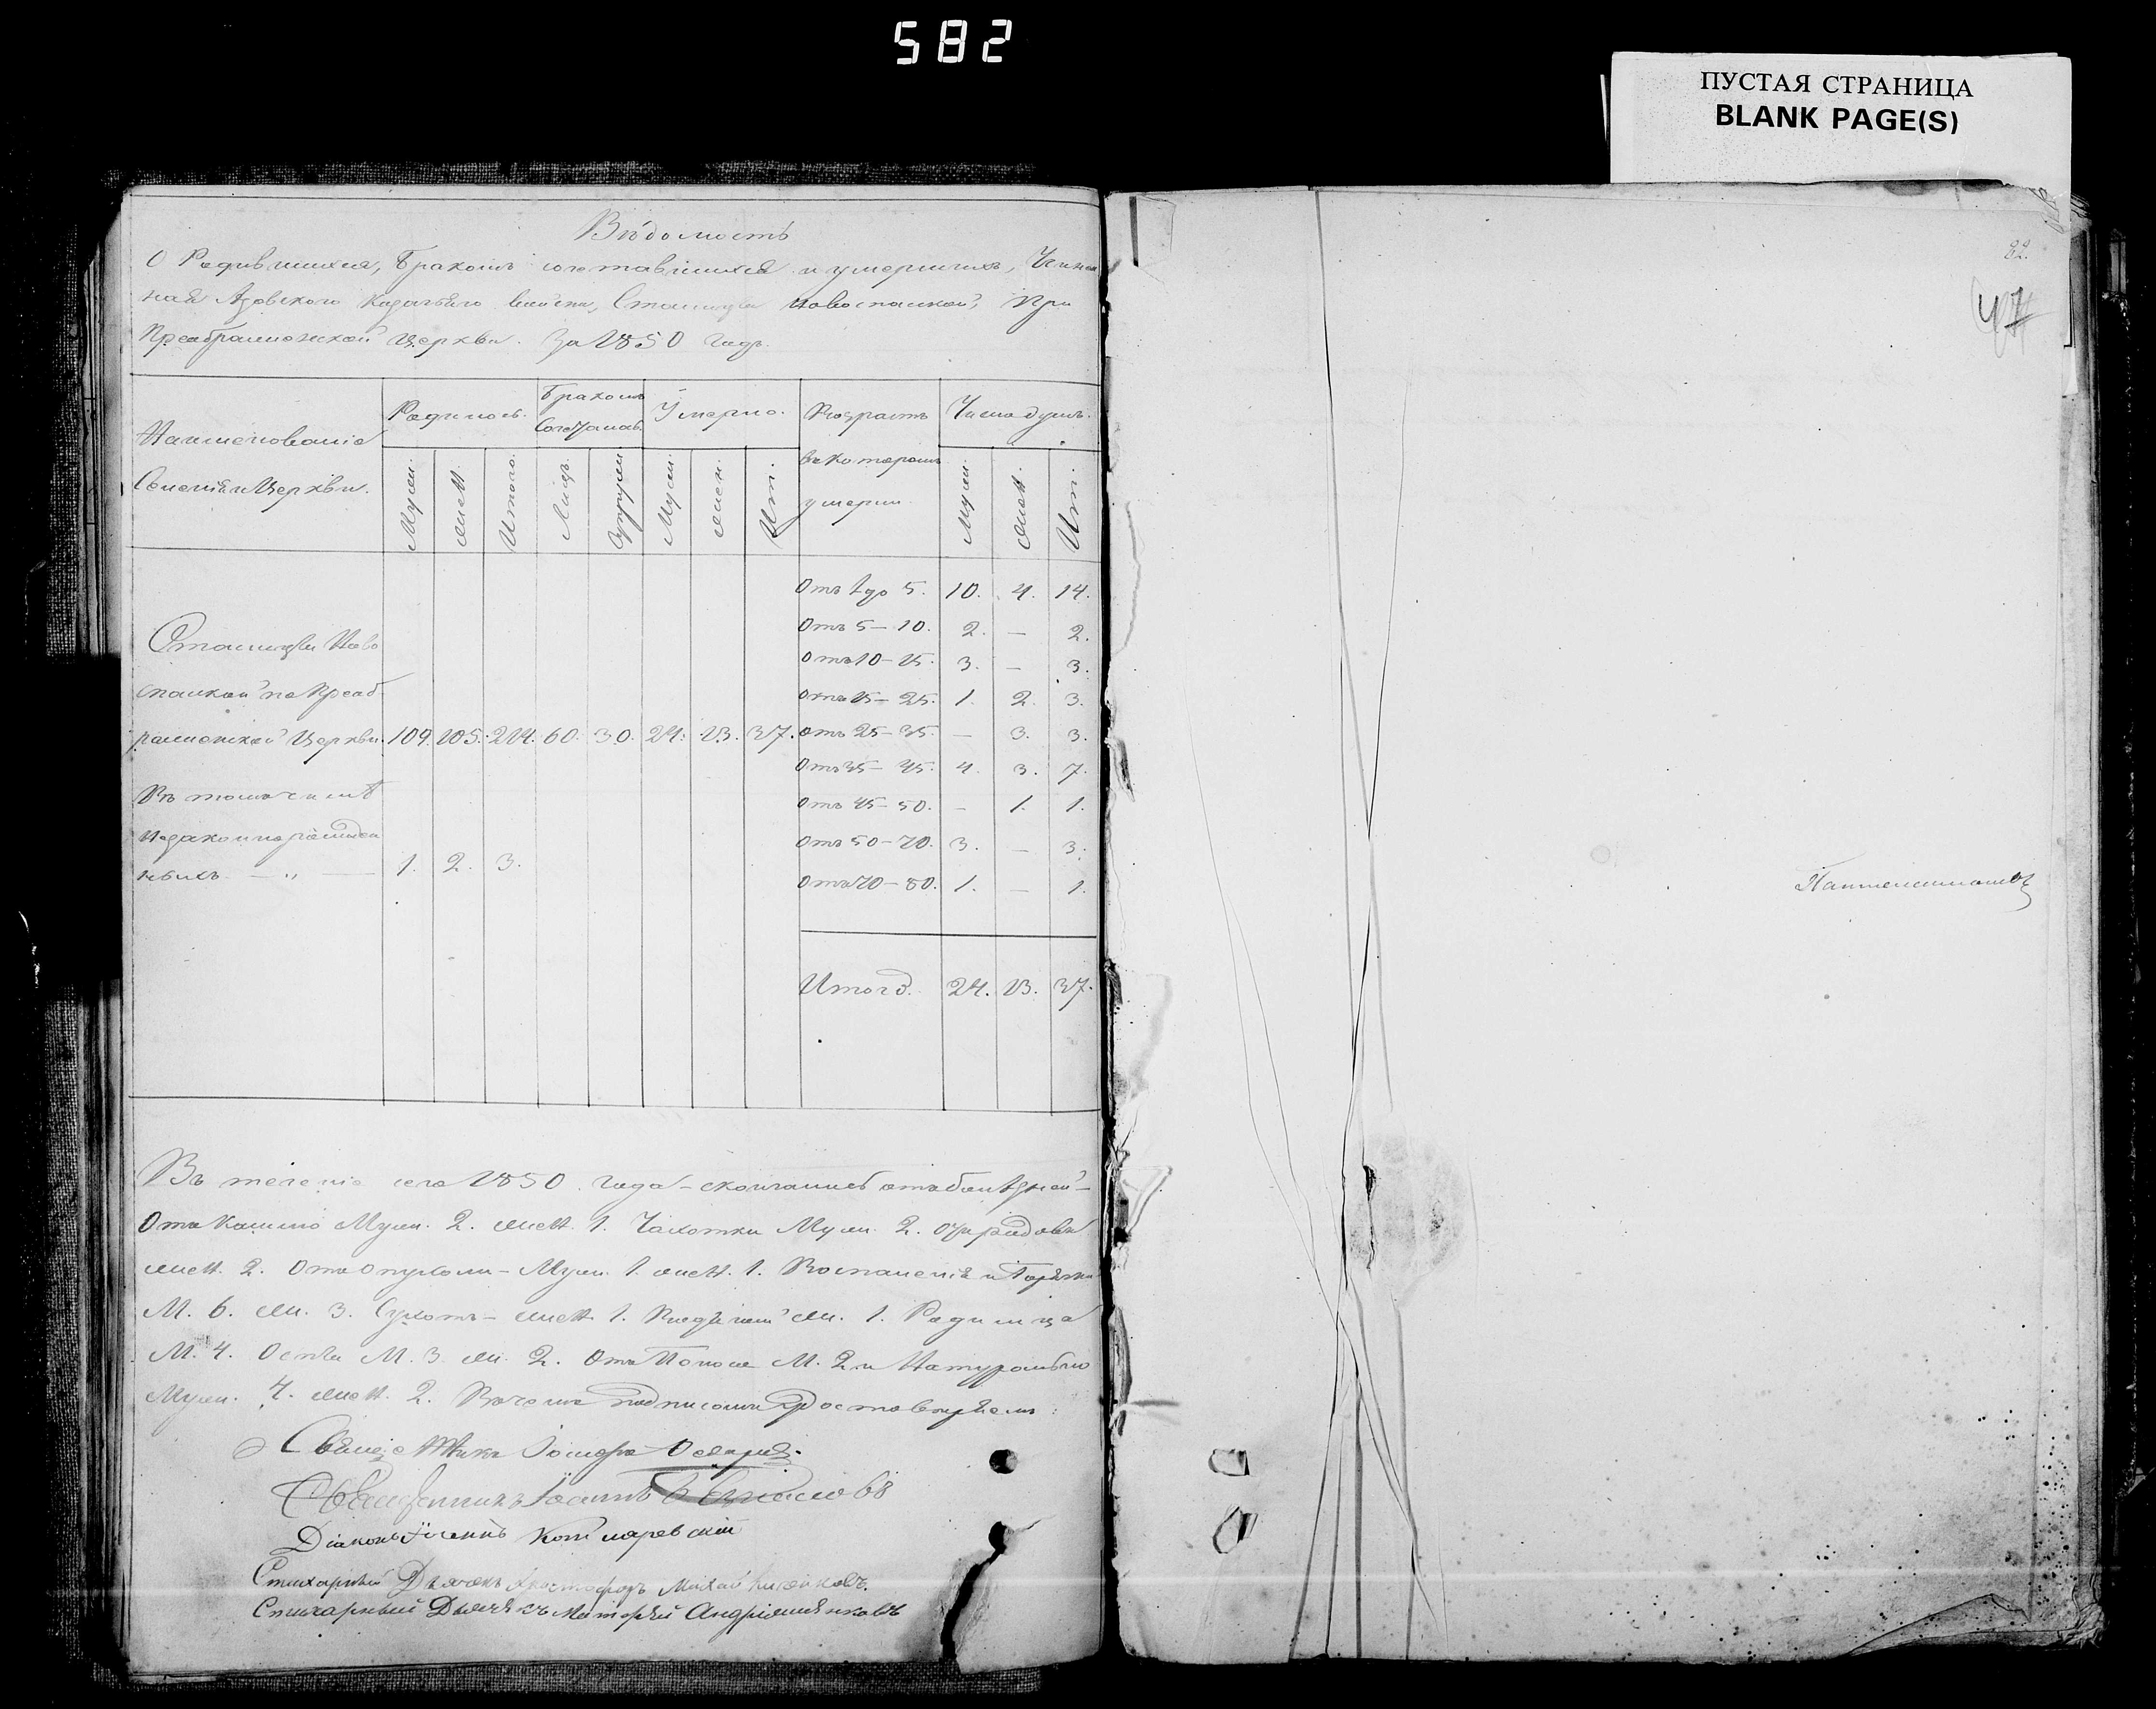 582
ПУСТАЯ СТРАНИЦА
BLANK PAGE(S)
Вѣдомость
О Родившихся, Бракомъ сочетавшихся и умершихъ, Чинен
ная Азовского Казачьяго войска, Станицы Новоспаской, При
Преображенской церкви. За 1850 годъ.
Наименованіе
Селенія и Церкви.
Родилось.
Бракомъ
Сочетанов.
Умерло.
Возрастъ
въ которомъ
умерли
Число душъ.
Муж. Жен. Итого. Лицъ. Супруж. Муж. Жен. Ит. Муж. Жен. Ит.
Отъ 1 до 5. 10. 4. 14.
Отъ 5 — 10. 2. — 2.
Отъ 10 — 15. 3. — 3.
Отъ 15 — 25. 1. 2. 3.
Отъ 25 — 35. — 3. 3.
Отъ 35 — 45. 4. 3. 7.
Отъ 45 — 50. — 1. 1.
Отъ 50 — 70. 3. — 3.
Отъ 70 — 80. 1. — 1.
Итого. 24. 13. 37.
Станицы Ново
спаской по Преоб
раженской Церкви. 109. 105. 214. 60. 30. 24. 13. 37.
Въ томъ числѣ
Незаконнорожден
ныхъ — „ — 1. 2. 3.
Въ теченіе сего 1850 года — скончались отъ болѣзней —
Отъ Кашлю Муж. 2. Жен. 1. Чахотки Муж. 2.
Жен. 2. Отъ Опухоли — Муж. 1. Жен. 1. Воспаленія и Горячки
М. 6. Ж. 3. Сухотъ — Жен. 1. Ж. 1. Родимца
М. 4. Оспы М. 3. Ж. 2. Отъ Поноса М. 2. и Натурально
Муж. 4. Жен. 2. Въ чемъ подписомъ удостовѣряемъ:
Священникъ Іосифъ
Священникъ Іоаннъ
Діаконъ Котляревскій
Стихарный Дьячокъ Христофоръ Михайличенковъ.
Стихарный Дьячекъ Матфей Андріяшенковъ
82.
47